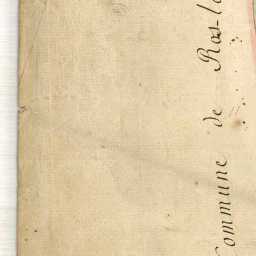 Commune de Ros-